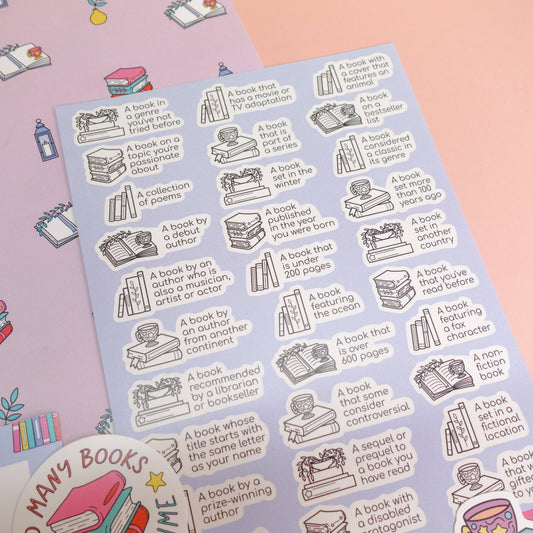 A book in
a genre
you've not
tried before
A book on a
topic you're
passionate
about
A collection
of poems
A book by
a debut
author
A book by an
author who is
also a musician,
artist or actor
A book by
an author
from another
continent
A book
recommended
by a librarian
or bookseller
A book whose
title starts with
the same letter
as your name
A book by a
prize-winning
author
A book that
has a movie or
TV adaptation
A book
that is
part of
a series
A book
set in the
winter
A book
published
in the year
you were born
A book that
is under
200 pages
A book
featuring
the ocean
A book that
is over
600 pages
A book
that some
consider
controversial
A sequel or
prequel to
a book you
have read
A book with
a disabled
protagonist
A book with
a cover that
features an
animal
A book
on a
bestseller
list
A book
considered
a classic in
its genre
A book
set more
than 100
years ago
A book
set in
another
country
A book
that you've
read before
A book
featuring
a fox
character
A non-
fiction
book
A book
set in a
fictional
location
A book
that
gifted
to y
O MANY BOOKS